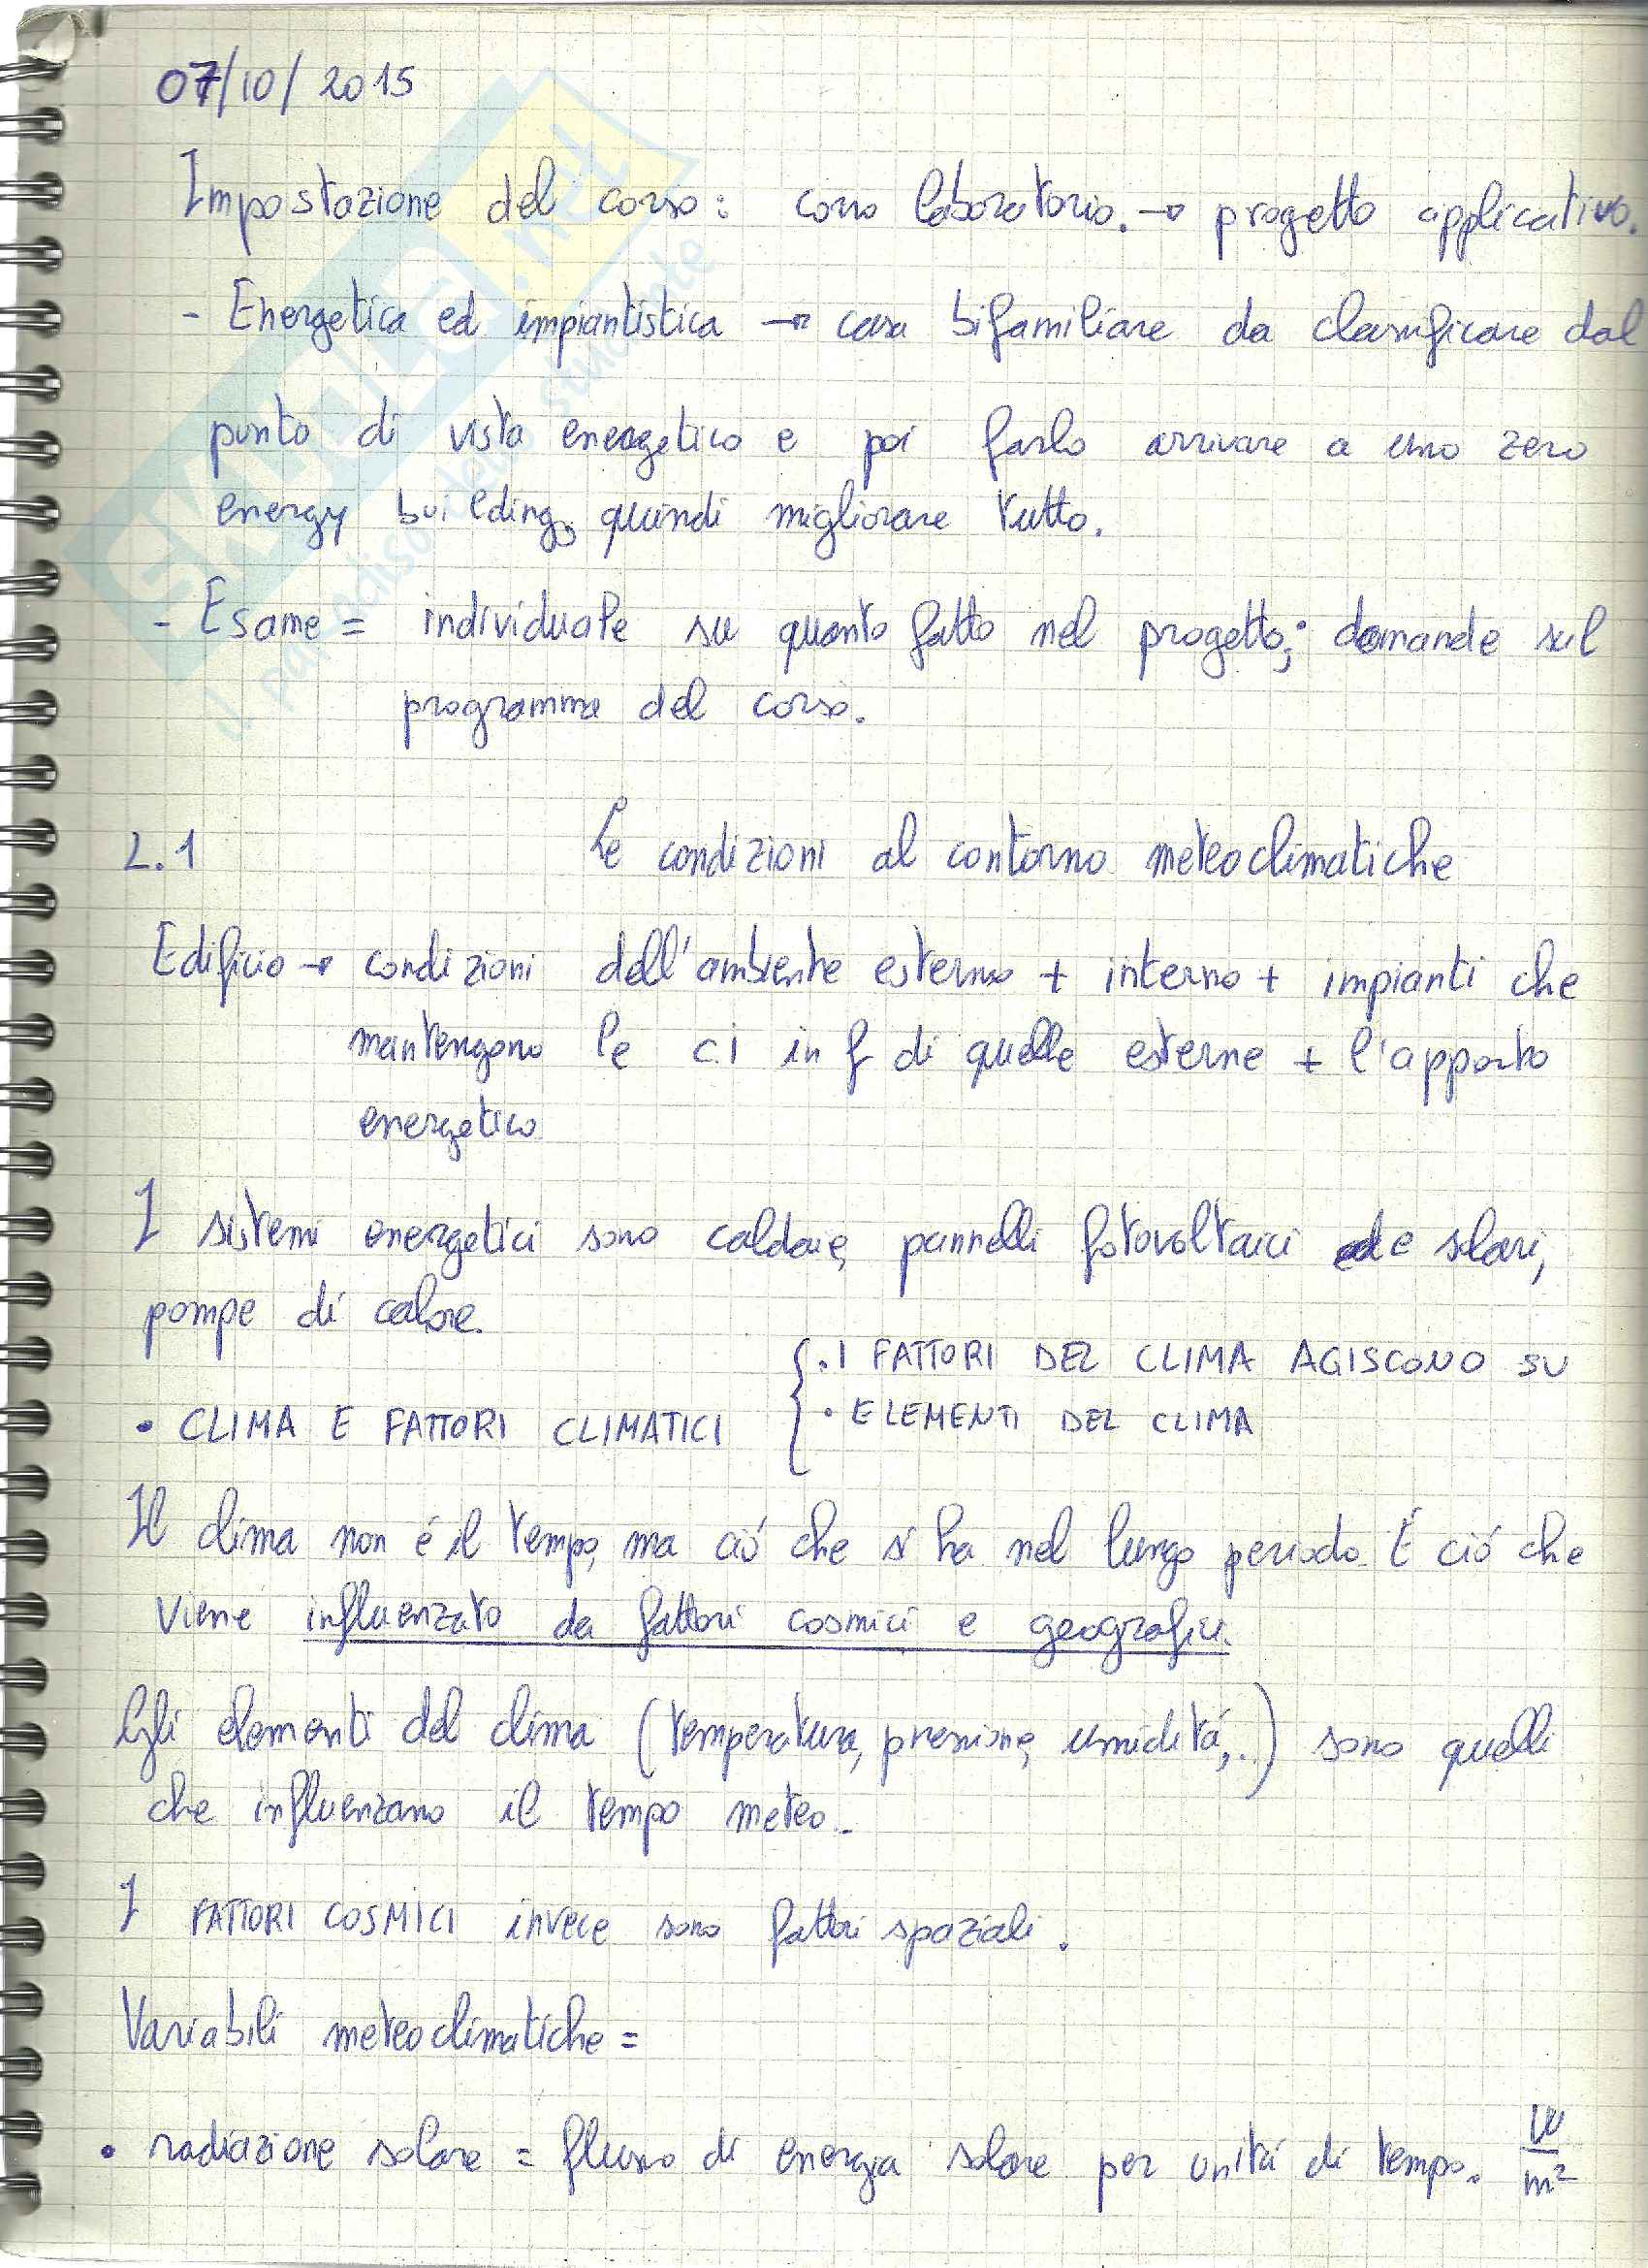 07/10/2015
Impostazione del corso: corso laboratorio. → progetto applicativo.
- Energetica ed impiantistica → casa bifamiliare da classificare dal
punto di vista energetico e poi farlo arrivare a uno zero
energy building, quindi migliorare tutto.
- Esame = individuale su quanto fatto nel progetto; domande sul
programma del corso.
2.1 Le condizioni al contorno meteoclimatiche
Edificio → condizioni dell'ambiente esterno + interno + impianti che
mantengono le c.i in f di quelle esterne + l'apporto
energetico
I sistemi energetici sono caldaie, pannelli fotovoltaici e solari,
pompe di calore.
{ . I FATTORI DEL CLIMA AGISCONO SU
• CLIMA E FATTORI CLIMATICI • ELEMENTI DEL CLIMA
Il clima non é il tempo, ma ció che si ha nel lungo periodo. É ció che
viene influenzato da fattori cosmici e geografici.
Gli elementi del clima (temperatura, pressione, umiditá,..) sono quelli
che influenzano il tempo meteo.
I FATTORI COSMICI invece sono fattori spaziali.
Variabili meteoclimatiche =
• radiazione solare = flusso di energia solare per unitá di tempo. W/m²
SKUOLA.net
il paradiso dello studente